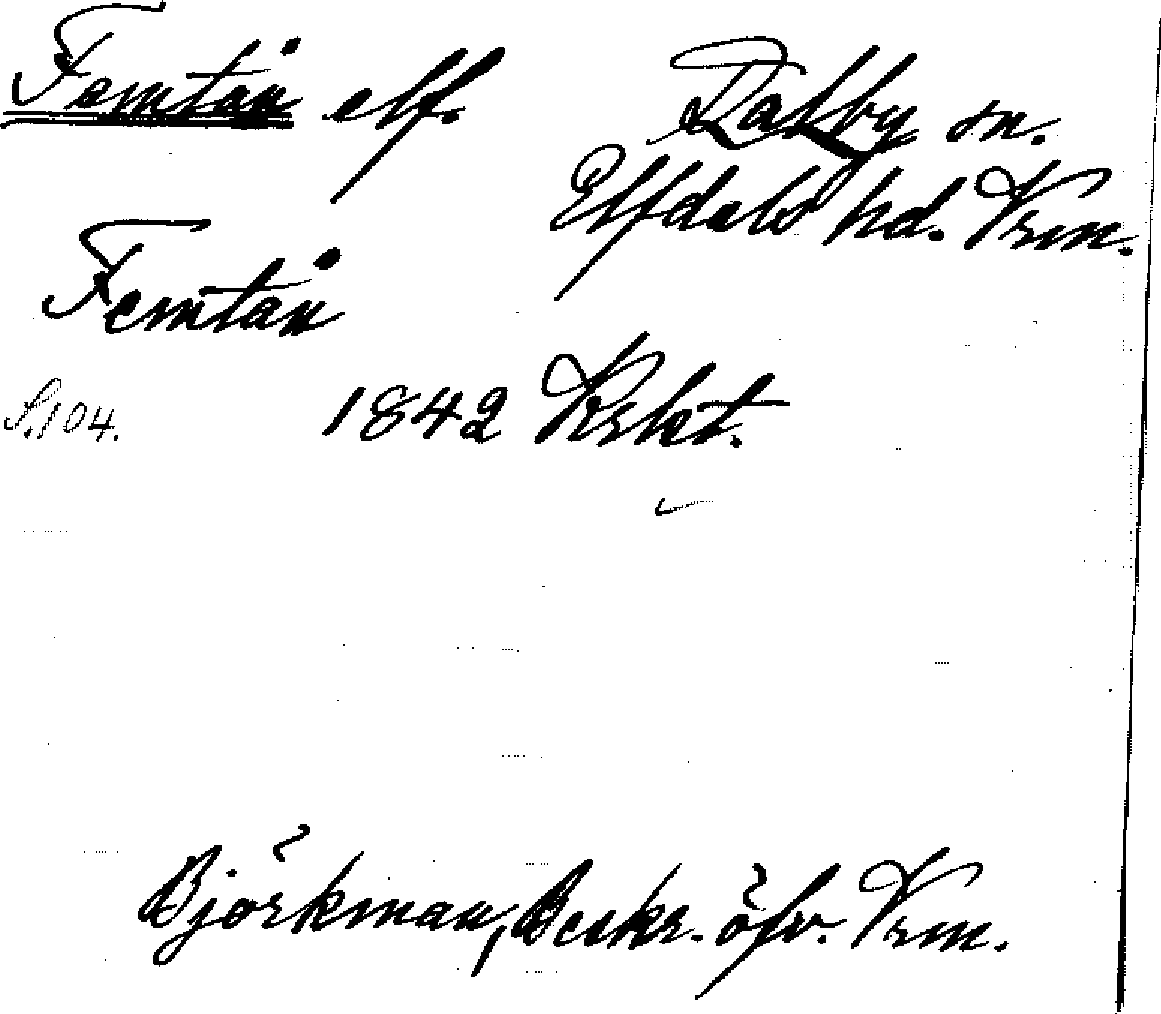 Femtån elf. Dalby sn.
Elfdals hd. Vrm.
Femtån
S. 104. 1842 Krkt.
Björkman, Beskr. öfv. Vrm.